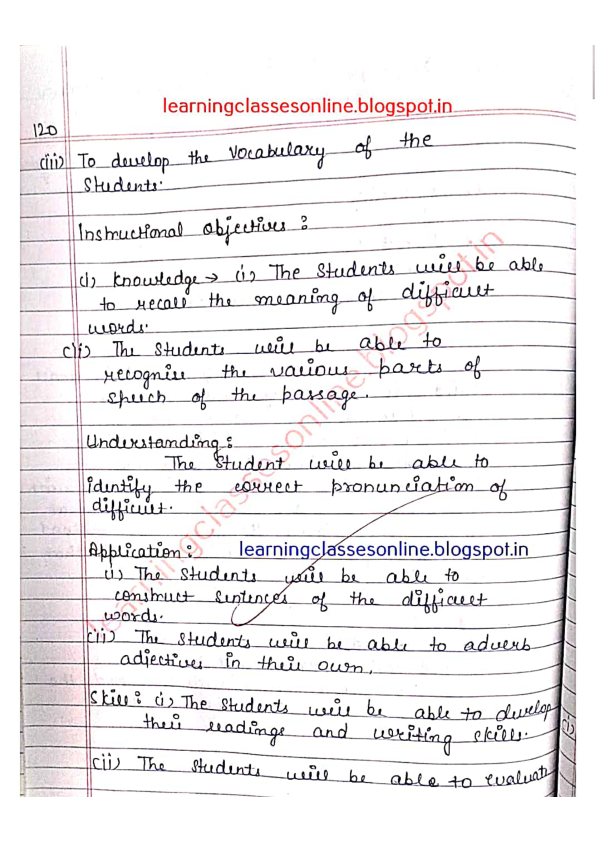 learningclassesonline.blogspot.in
120
(iii) To develop the vocabulary of the
Students.
Instructional objectives :
(i) Knowledge → (i) The Students will be able
to recall the meaning of difficult
words.
(ii) The Students will be able to
recognise the various parts of
speech of the passage.
Understanding :
The Student will be able to
identify the correct pronunciation of
difficult.
Application :
learningclassesonline.blogspot.in
(i) The Students will be able to
construct Sentences of the difficult
words.
(ii) The Students will be able to adverb
adjectives in their own.
Skill : (i) The Students will be able to develop
their readings and writing skills.
(i)
(ii) The Students will be able to evaluate
learningclassesonline.blogspot.in